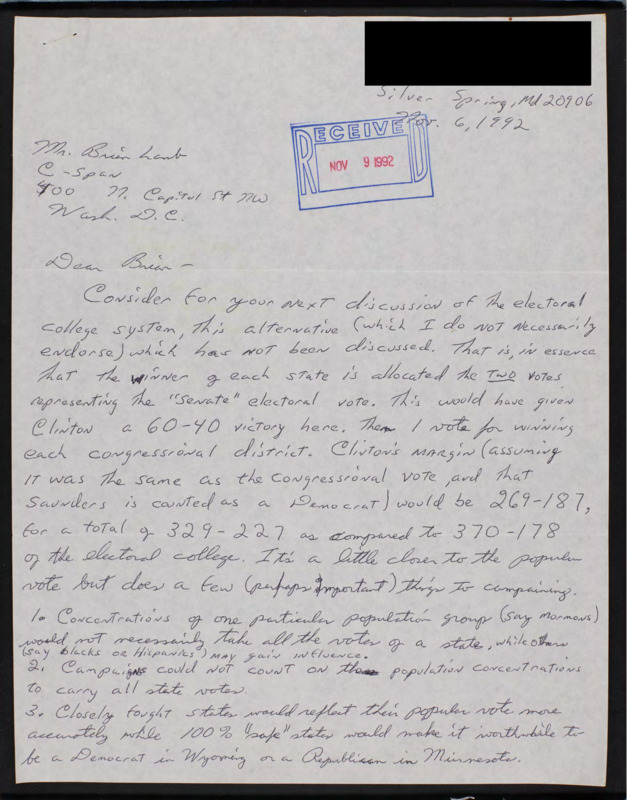 Silver Spring, Md 20906
Nov. 6, 1992
RECEIVED
NOV 9 1992
Mr. Brian Lamb
C-Span
400 N. Capitol St NW
Wash. D.C.
Dear Brian -
Consider for your next discussion of the electoral
college system, this alternative (which I do not necessarily
endorse) which has not been discussed. That is, in essence
that the winner of each state is allocated the TWO votes
representing the "Senate" electoral vote. This would have given
Clinton a 60-40 victory here. Then 1 vote for winning
each congressional district. Clinton's margin (assuming
it was the same as the Congressional vote, and that
Saunders is counted as a Democrat) would be 269-187,
for a total of 329-227 as compared to 370-178
of the electoral college. It's a little closer to the popular
vote but does a few (perhaps important) things to campaining.
1. Concentrations of one particular population group (say Mormons)
would not necessarily take all the votes of a state, while others
(say blacks or Hispanics) may gain influence.
2. Campaigns could not count on population concentrations
to carry all state votes.
3. Closely fought states would reflect their popular vote more
accurately while 100% "safe" states would make it worthwhile to
be a Democrat in Wyoming or a Republican in Minnesota.